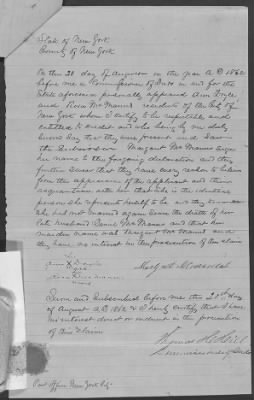 State of New York
County of New York
On this 21 day of August in the year A.D 1862
before me a Commissioner of Deeds in and for the
State aforesaid personally appeared Ann Doyle
and Rosa McManus residents of the City of
New York whom I certify to be respectable and
entitled to credit and who being by me duly
sworn say that they were present and saw
Margaret McManus sign
her name to the foregoing declaration and they
further swear that they have every reason to believe
from the appearance of the applicant and their
acquaintance with her that she is the identical
person she represents herself to be and they
she had not married again since the death of her
late husband Daniel McManus and that her
maiden name was Margaret McManus and
they have no interest in the prosecution of this claim
Ann Doyle
Rosa McManus
Sworn and Subscribed before me this 21st day
of August A.D. 1862 & I hereby certify that I have
no interest direct or indirect in the prosecution
of this Claim
Commissioner of Deeds
Post Office New York City